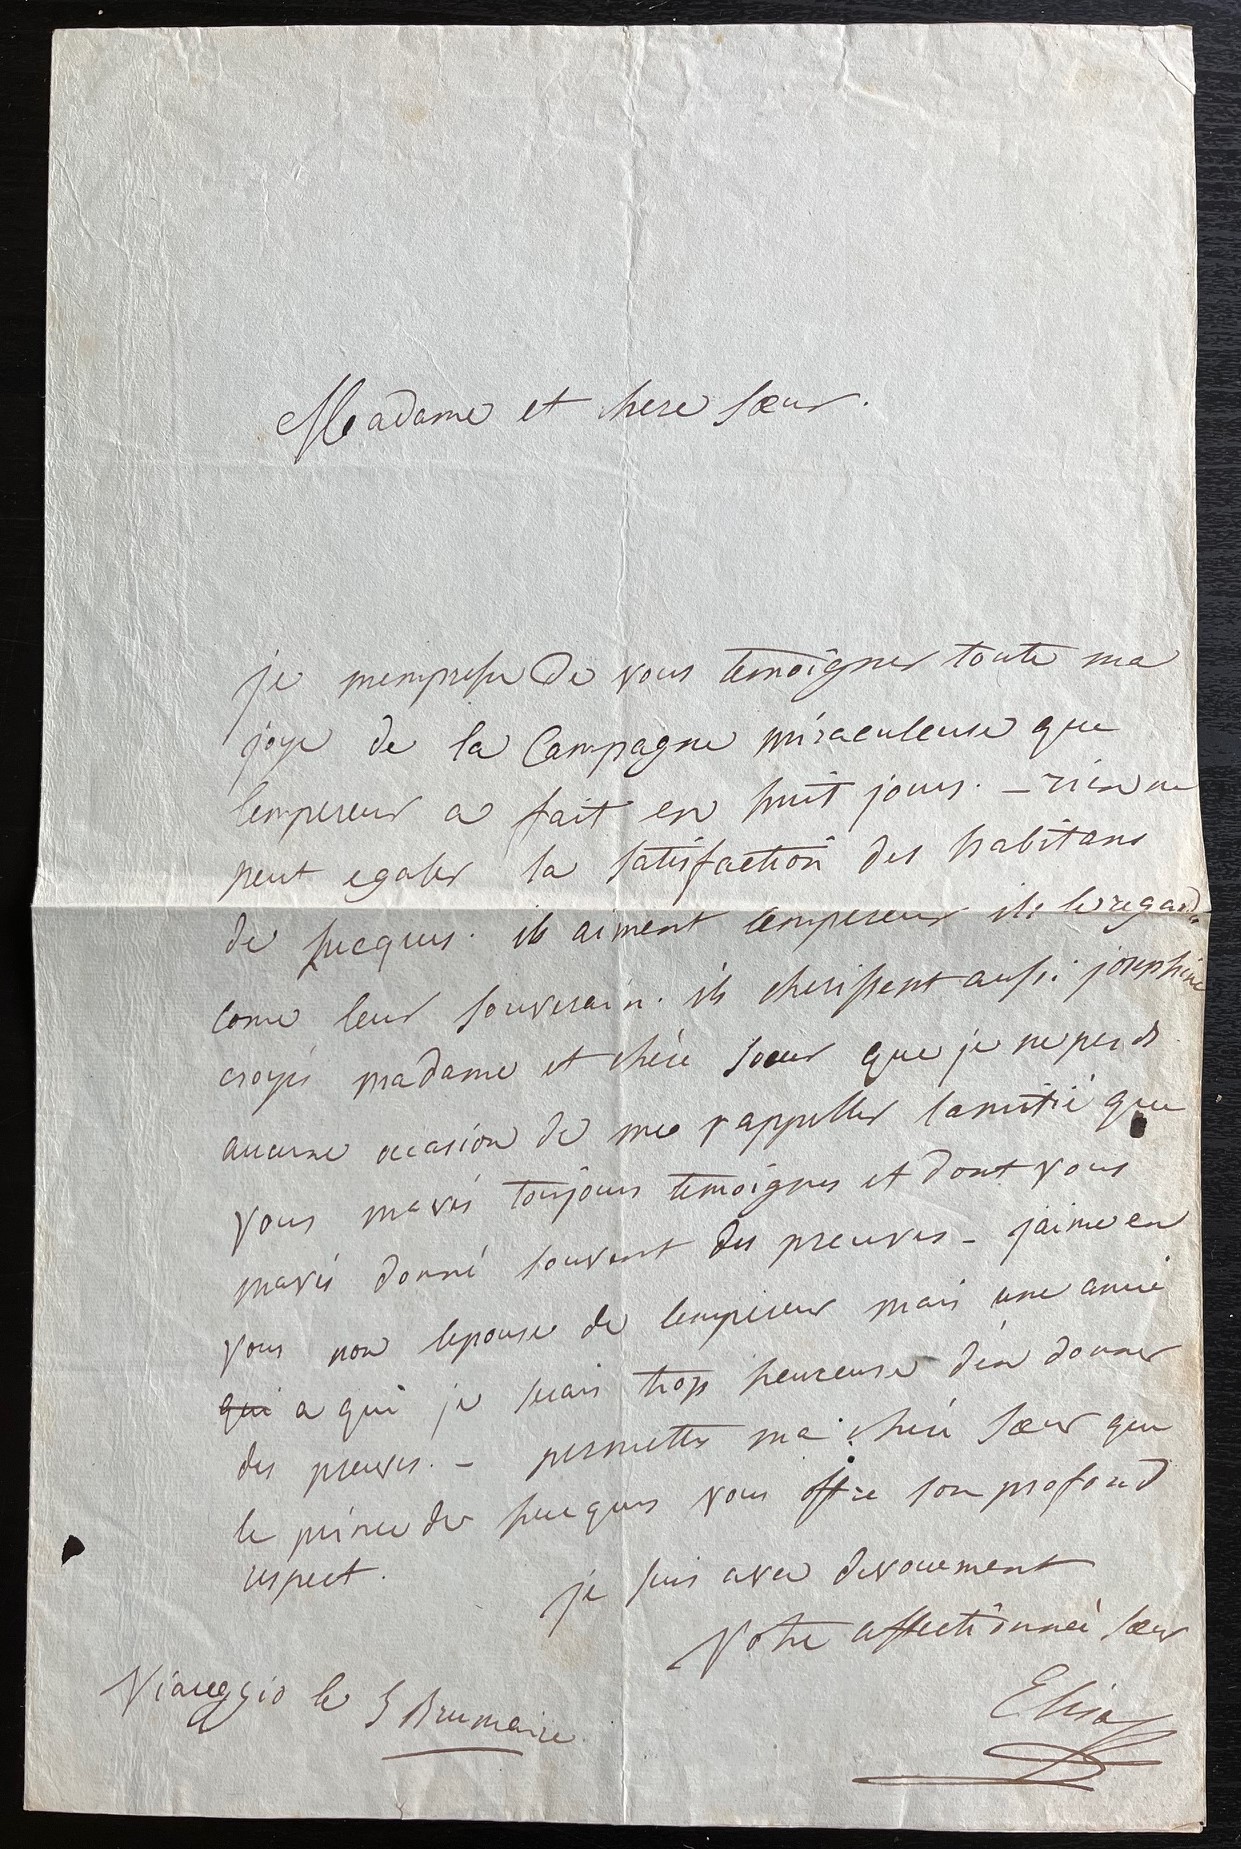 Madame et chere sœur.
je mempresse de vous temoigner toute ma
joye de la Campagne miraculeuse que
lempereur a fait en huit jours. – rien ne
peut egaler la satisfaction des habitans
de Lucques. ils aiment lempereur ils le regarde
come leur souverain. ils cherissent aussi josephine
croyés madame et chére soeur que je ne perds
aucune occasion de me rappeller lamitié que
vous mavés toujours temoignés et dont vous
mavés donné souvent des preuves – jaime en
vous non lepouse de lempereur mais une amie
qui a qui je serais trop heureuse d'en donner
des preuves. – permettes ma chére sœur que
le prince de Lucques vous offre son profond
respect.
je suis avec devouement
Votre affectionnée sœur
Elisa
Viareggio le 5 Brumaire